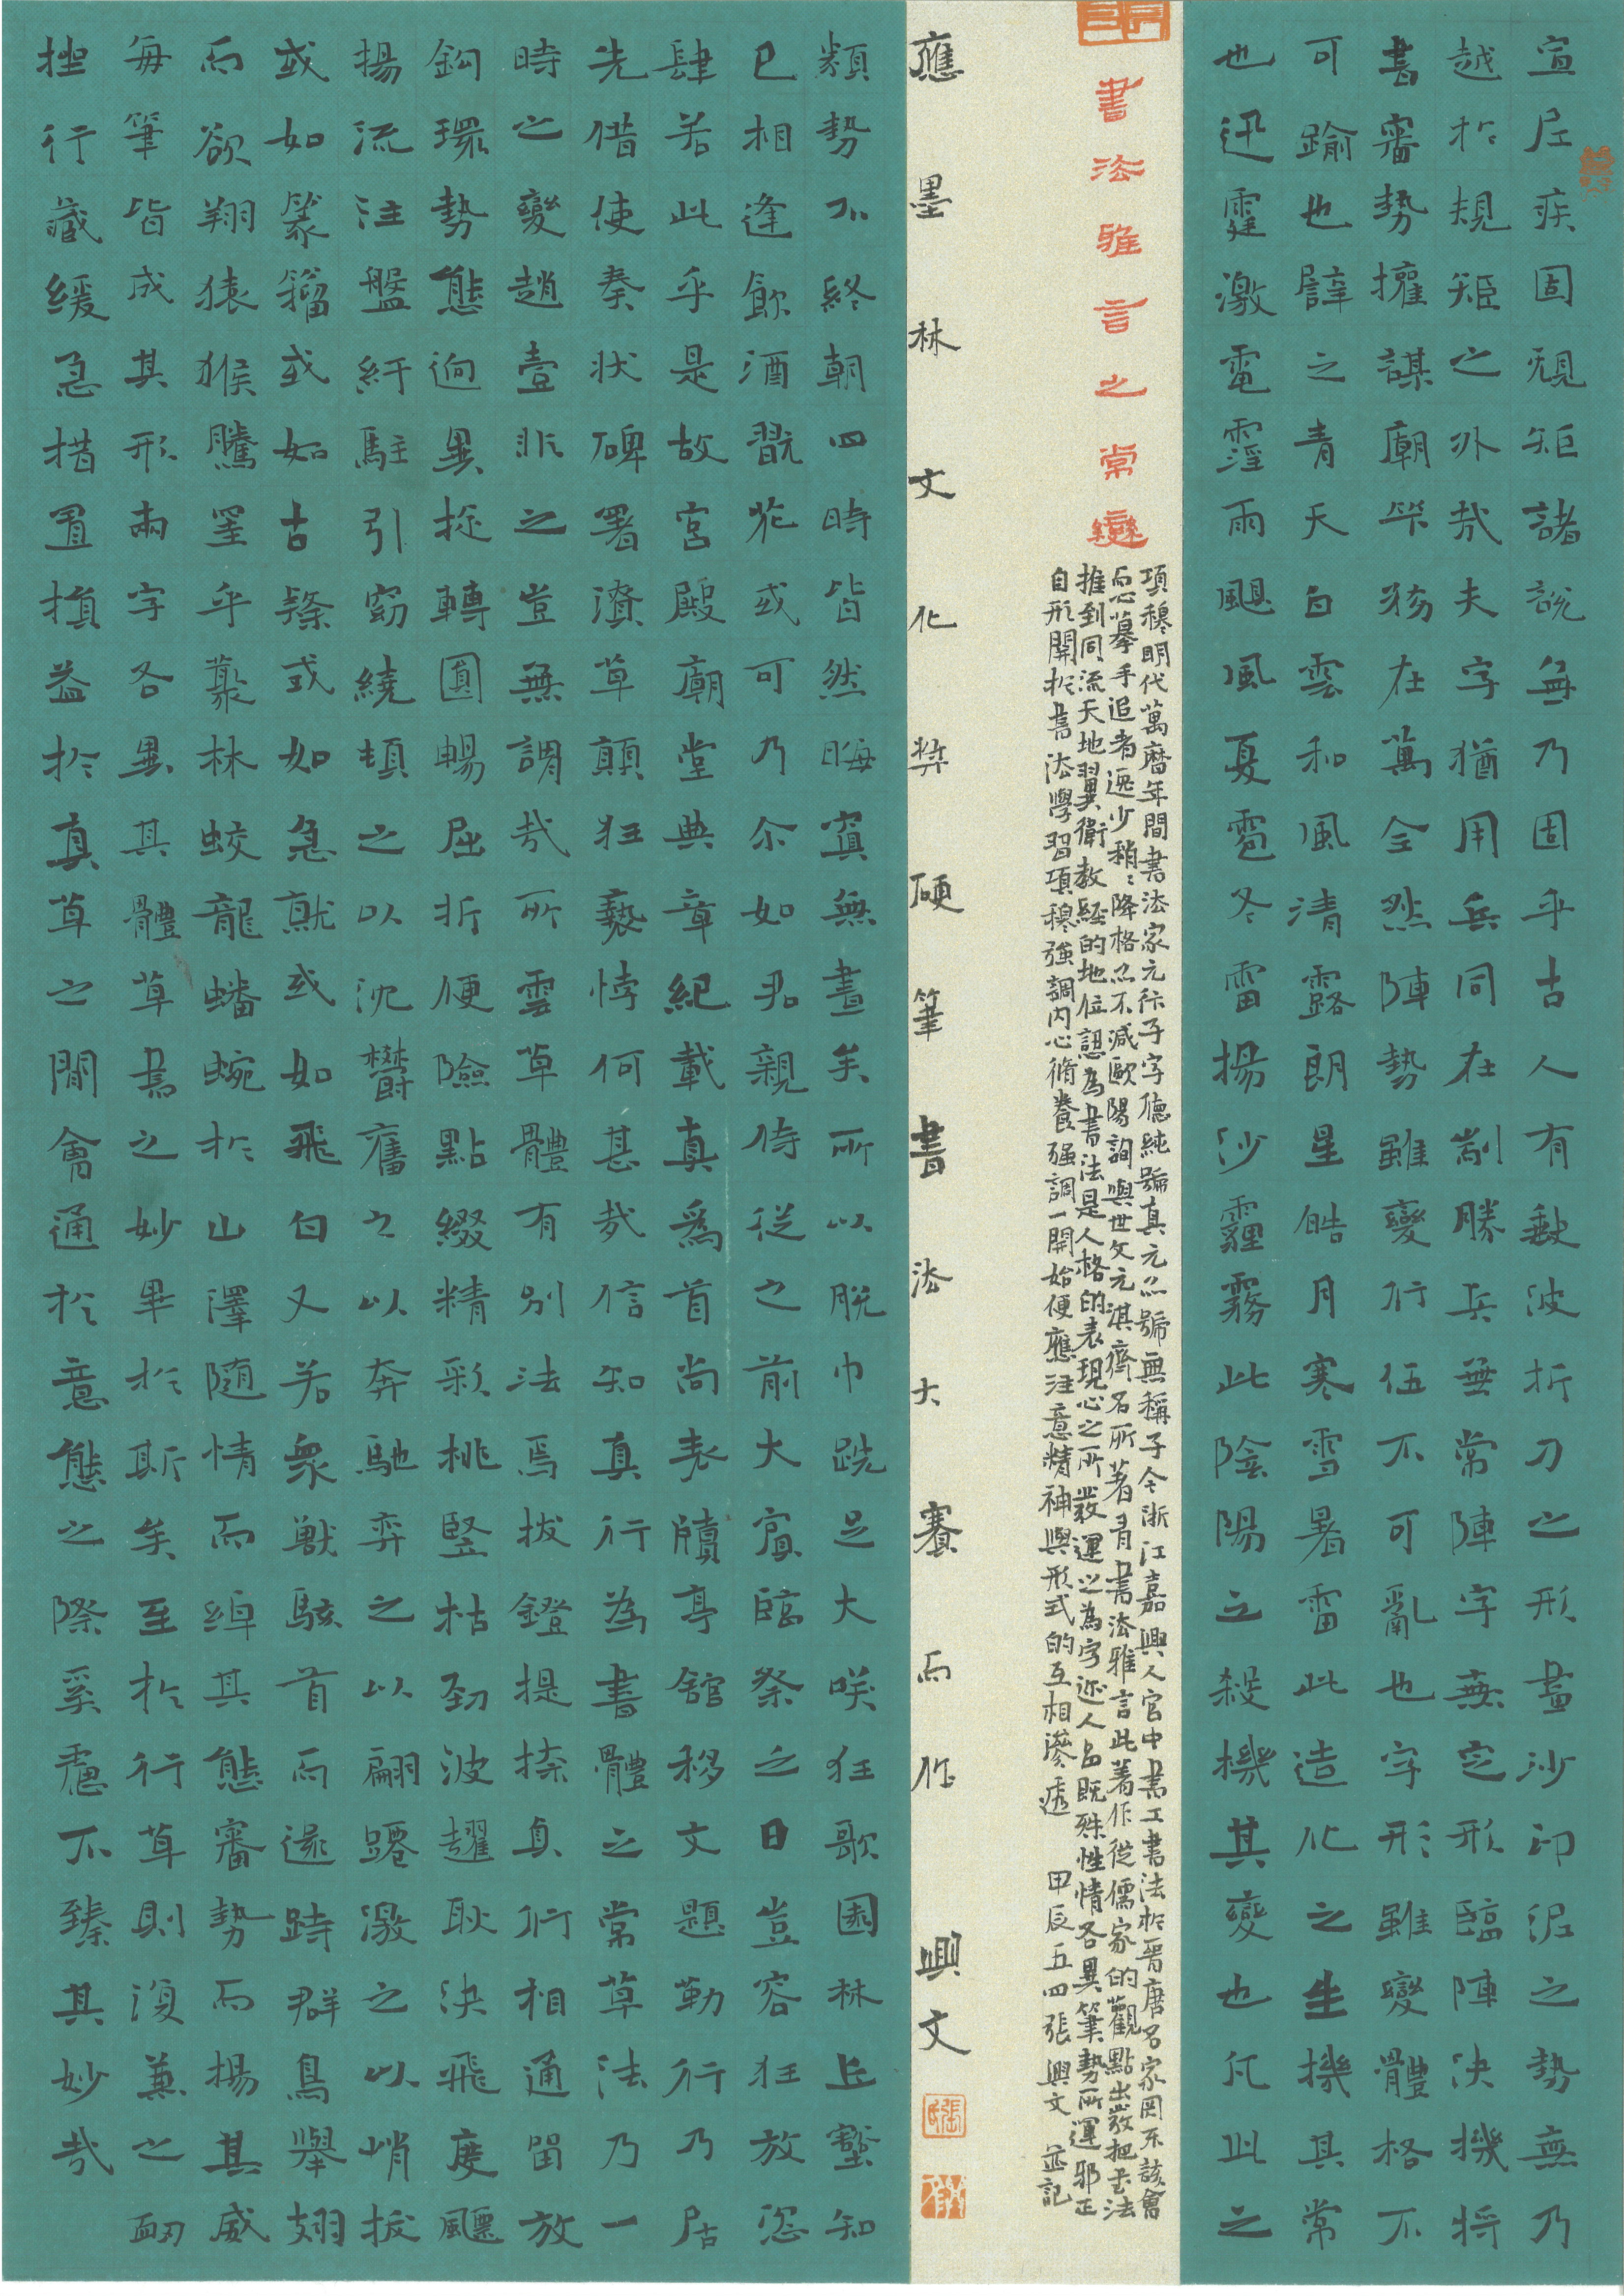 宣尼疾固孟規矩諸說無乃固乎古人有缺波折刀之形畫沙印泥之勢無乃
越於規矩之外哉夫字猶用兵同在制勝兵無常陣字無定形臨陣決機將
書審勢權謀廟算務在萬全然陣勢雖變行伍不可亂也字形雖變體格不
可踰也譬之青天白雲和風清露朗星皓月寒雪暑雷此造化之生機其常
也迅霆激電霪雨颶風夏雹冬雷揚沙霾霧此陰陽之殺機其變也凡此之
書法雅言之常變
項穆明代萬曆年間書法家元汴子字德純號真元亦號無稱子今浙江嘉興人官中書工書法於晉唐名家罔不該會
而心摹手追者逸少稍々降格亦不減歐陽詢與世父元淇齊名所著有書法雅言此著作從儒家的觀點出發把書法
推到同流天地翼衛教經的地位認為書法是人格的表現心之所發運之為字迹人品既殊性情各異筆勢所運邪正
自形關於書法學習項穆強調內心脩養强調一開始便應注意精神與形式的互相滲透 甲辰五四張興文並記
應墨林文化弊硬筆書法大賽而作 興文
類勢不終朝四時皆然晦冥無晝矣所以脫巾跣足大咲狂歌園林丘壑知
已相逢飲酒翫花或可乃尒如君親侍從之前大賓臨祭之日豈容狂放恣
肆若此乎是故宮殿廟堂典章紀載真爲首尚表牘亭館移文題勒行乃居
先借使奏狀碑署潰草顛狂褻悖何甚哉信知真行為書體之常草法乃一
時之變趙壹非之豈無謂哉所雲草體有別法焉拔鐙提捺真行相通留放
鈎環勢態迥異旋轉圓暢屈折便險點綴精彩挑竪枯勁波趯耿決飛度飄
揚流注盤紆駐引窈繞頓之以沈鬱奮之以奔馳弈之以翩躚激之以峭拔
或如篆籀或如古隸或如急就或如飛白又若衆獸駭首而還跱群鳥舉翅
而欲翔猿猴騰掛乎叢林蛟龍蟠蜿於山澤隨情而綽其態審勢而揚其威
每筆皆成其形兩字各異其體草書之妙畢於斯矣至於行草則復兼之衂
挫行藏緩急措置損益於真草之間會通於意態之際奚慮不臻其妙哉